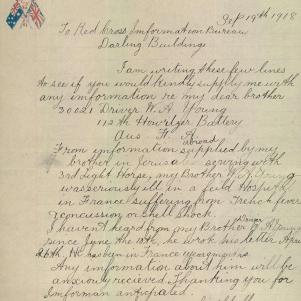 Sep 19th 1918
To Red Cross Imformation Bureau
Darling Buildings
I am writing these few lines
to see if you would kindly supply me with
any imformation re my dear brother
30621 Driver W. A Young
112th Howitzer Battery
Aus F. A.
abroad
From imformation supplied by my
brother in Jerusalem serving with
3rd Light Horse, my Brother W. A Young
was seriously ill in a feild Hospital
in France suffering from Trench fever
concussion or shell shock.
I havent heard from my Brother Driver W A Young
since June the 18th, he wrote his letter April
26th, He has been in France
Any imformation about him will be
anxously recieved. Thanking you for
Imforman anticipated.